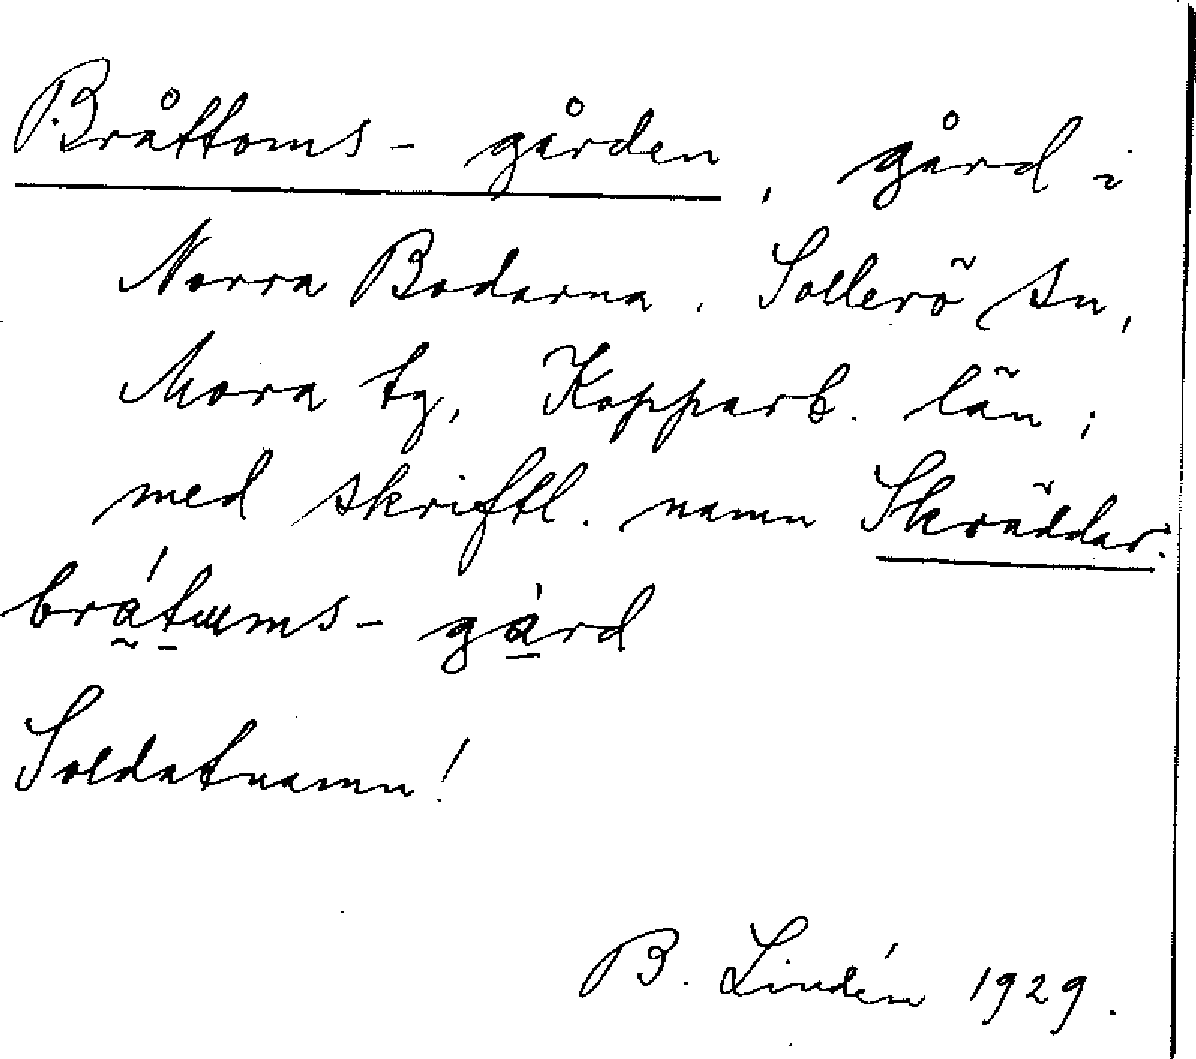 Bråttoms-gården, gård i
Norra Bodarna, Sollerö sn,
Mora tg, Kopparb. län;
med skriftl. namn Skräddar.
brátums-gárd
Soldatnamn!
B. Lindén 1929.